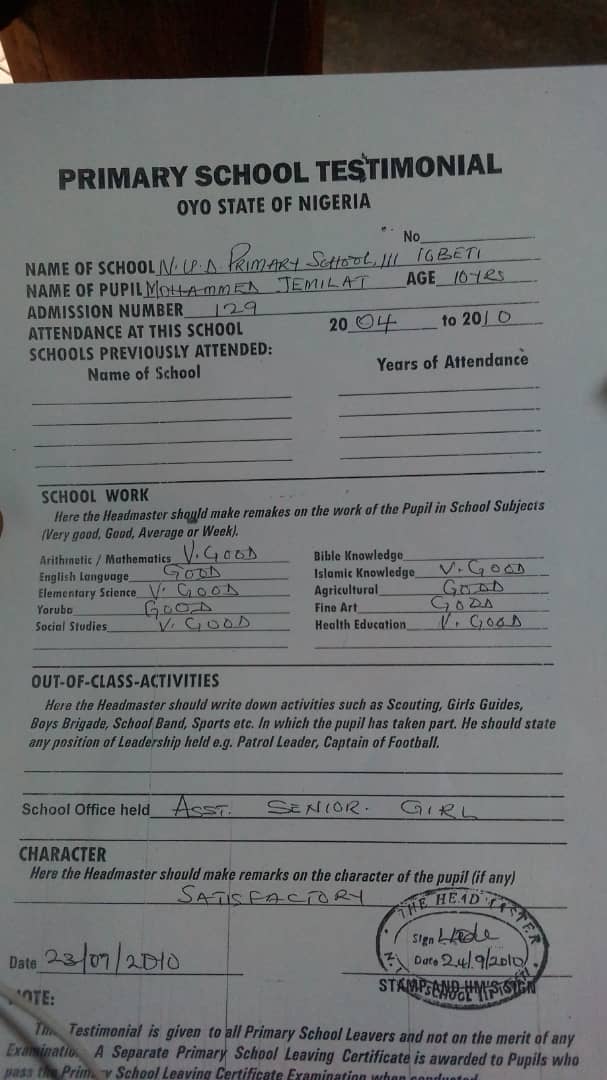 PRIMARY SCHOOL TESTIMONIAL
OYO STATE OF NIGERIA
No
NAME OF SCHOOL N.U.D. PRIMARY SCHOOL III IGBETI
NAME OF PUPIL MOHAMMED JEMILAT AGE 10YRS
ADMISSION NUMBER 129
ATTENDANCE AT THIS SCHOOL 2004 to 2010
SCHOOLS PREVIOUSLY ATTENDED:
Name of School Years of Attendance
SCHOOL WORK
Here the Headmaster should make remakes on the work of the Pupil in School Subjects
(Very good, Good, Average or Week).
Arithmetic / Mathematics V. GOOD
English Language GOOD
Elementary Science V. GOOD
Yoruba GOOD
Social Studies V. GOOD
Bible Knowledge
Islamic Knowledge V. GOOD
Agricultural GOOD
Fine Art GOOD
Health Education V. GOOD
OUT-OF-CLASS-ACTIVITIES
Here the Headmaster should write down activities such as Scouting, Girls Guides,
Boys Brigade, School Band, Sports etc. In which the pupil has taken part. He should state
any position of Leadership held e.g. Patrol Leader, Captain of Football.
School Office held ASST. SENIOR. GIRL
CHARACTER
Here the Headmaster should make remarks on the character of the pupil (if any)
SATISFACTORY
THE HEAD
Sign
Date 24/9/2010
Date 23/09/2010
STAMP AND HM'S SIGN
NOTE:
Testimonial is given to all Primary School Leavers and not on the merit of any
A Separate Primary School Leaving Certificate is awarded to Pupils who
pass the School Leaving Certificate Examination when conducted